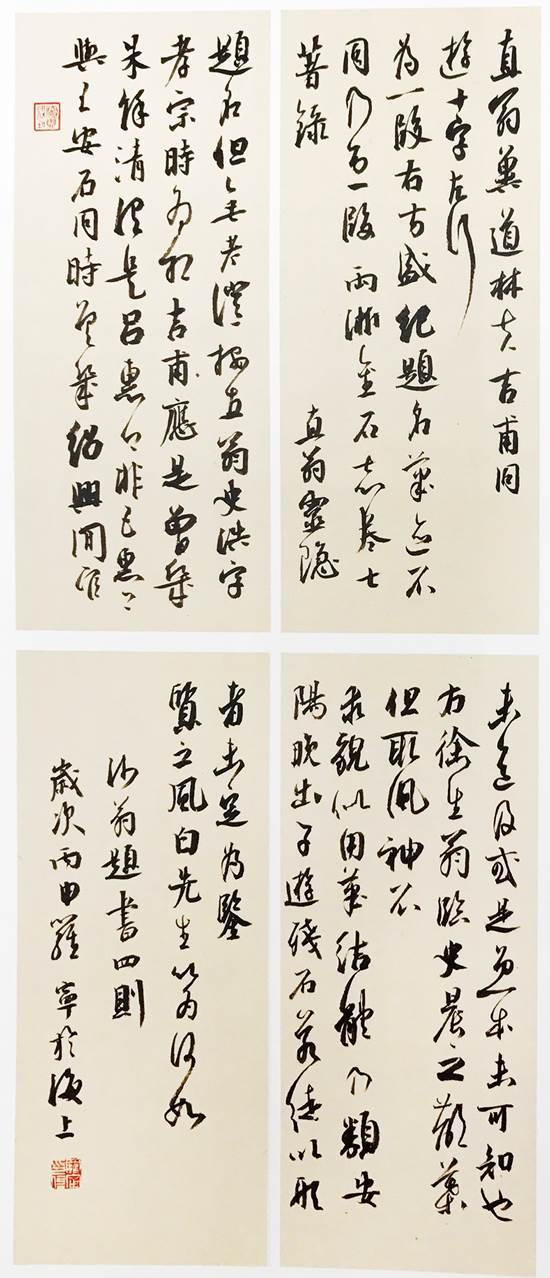 直翁兼道林夫吉甫同
遊十字左行
為一段右方盛紀題名筆迹不
同乃另一段兩浙金石志卷七
著錄
直翁靈隱
題名但無 按直翁史浩字
孝宗時為相吉甫應是曾幾
朱 清謂是呂惠卿非也惠卿
與王安石同時曾幾紹興間官
未 及或是 本未可知也
方徐生翁臨史晨之 筆
但取風神不
求貌似用筆結體乃類安
陽晚出子遊殘石若徒以形
者未足為鑒
質之風白先生以為何如
沙翁題書四則
歲次丙申羅寧於海上